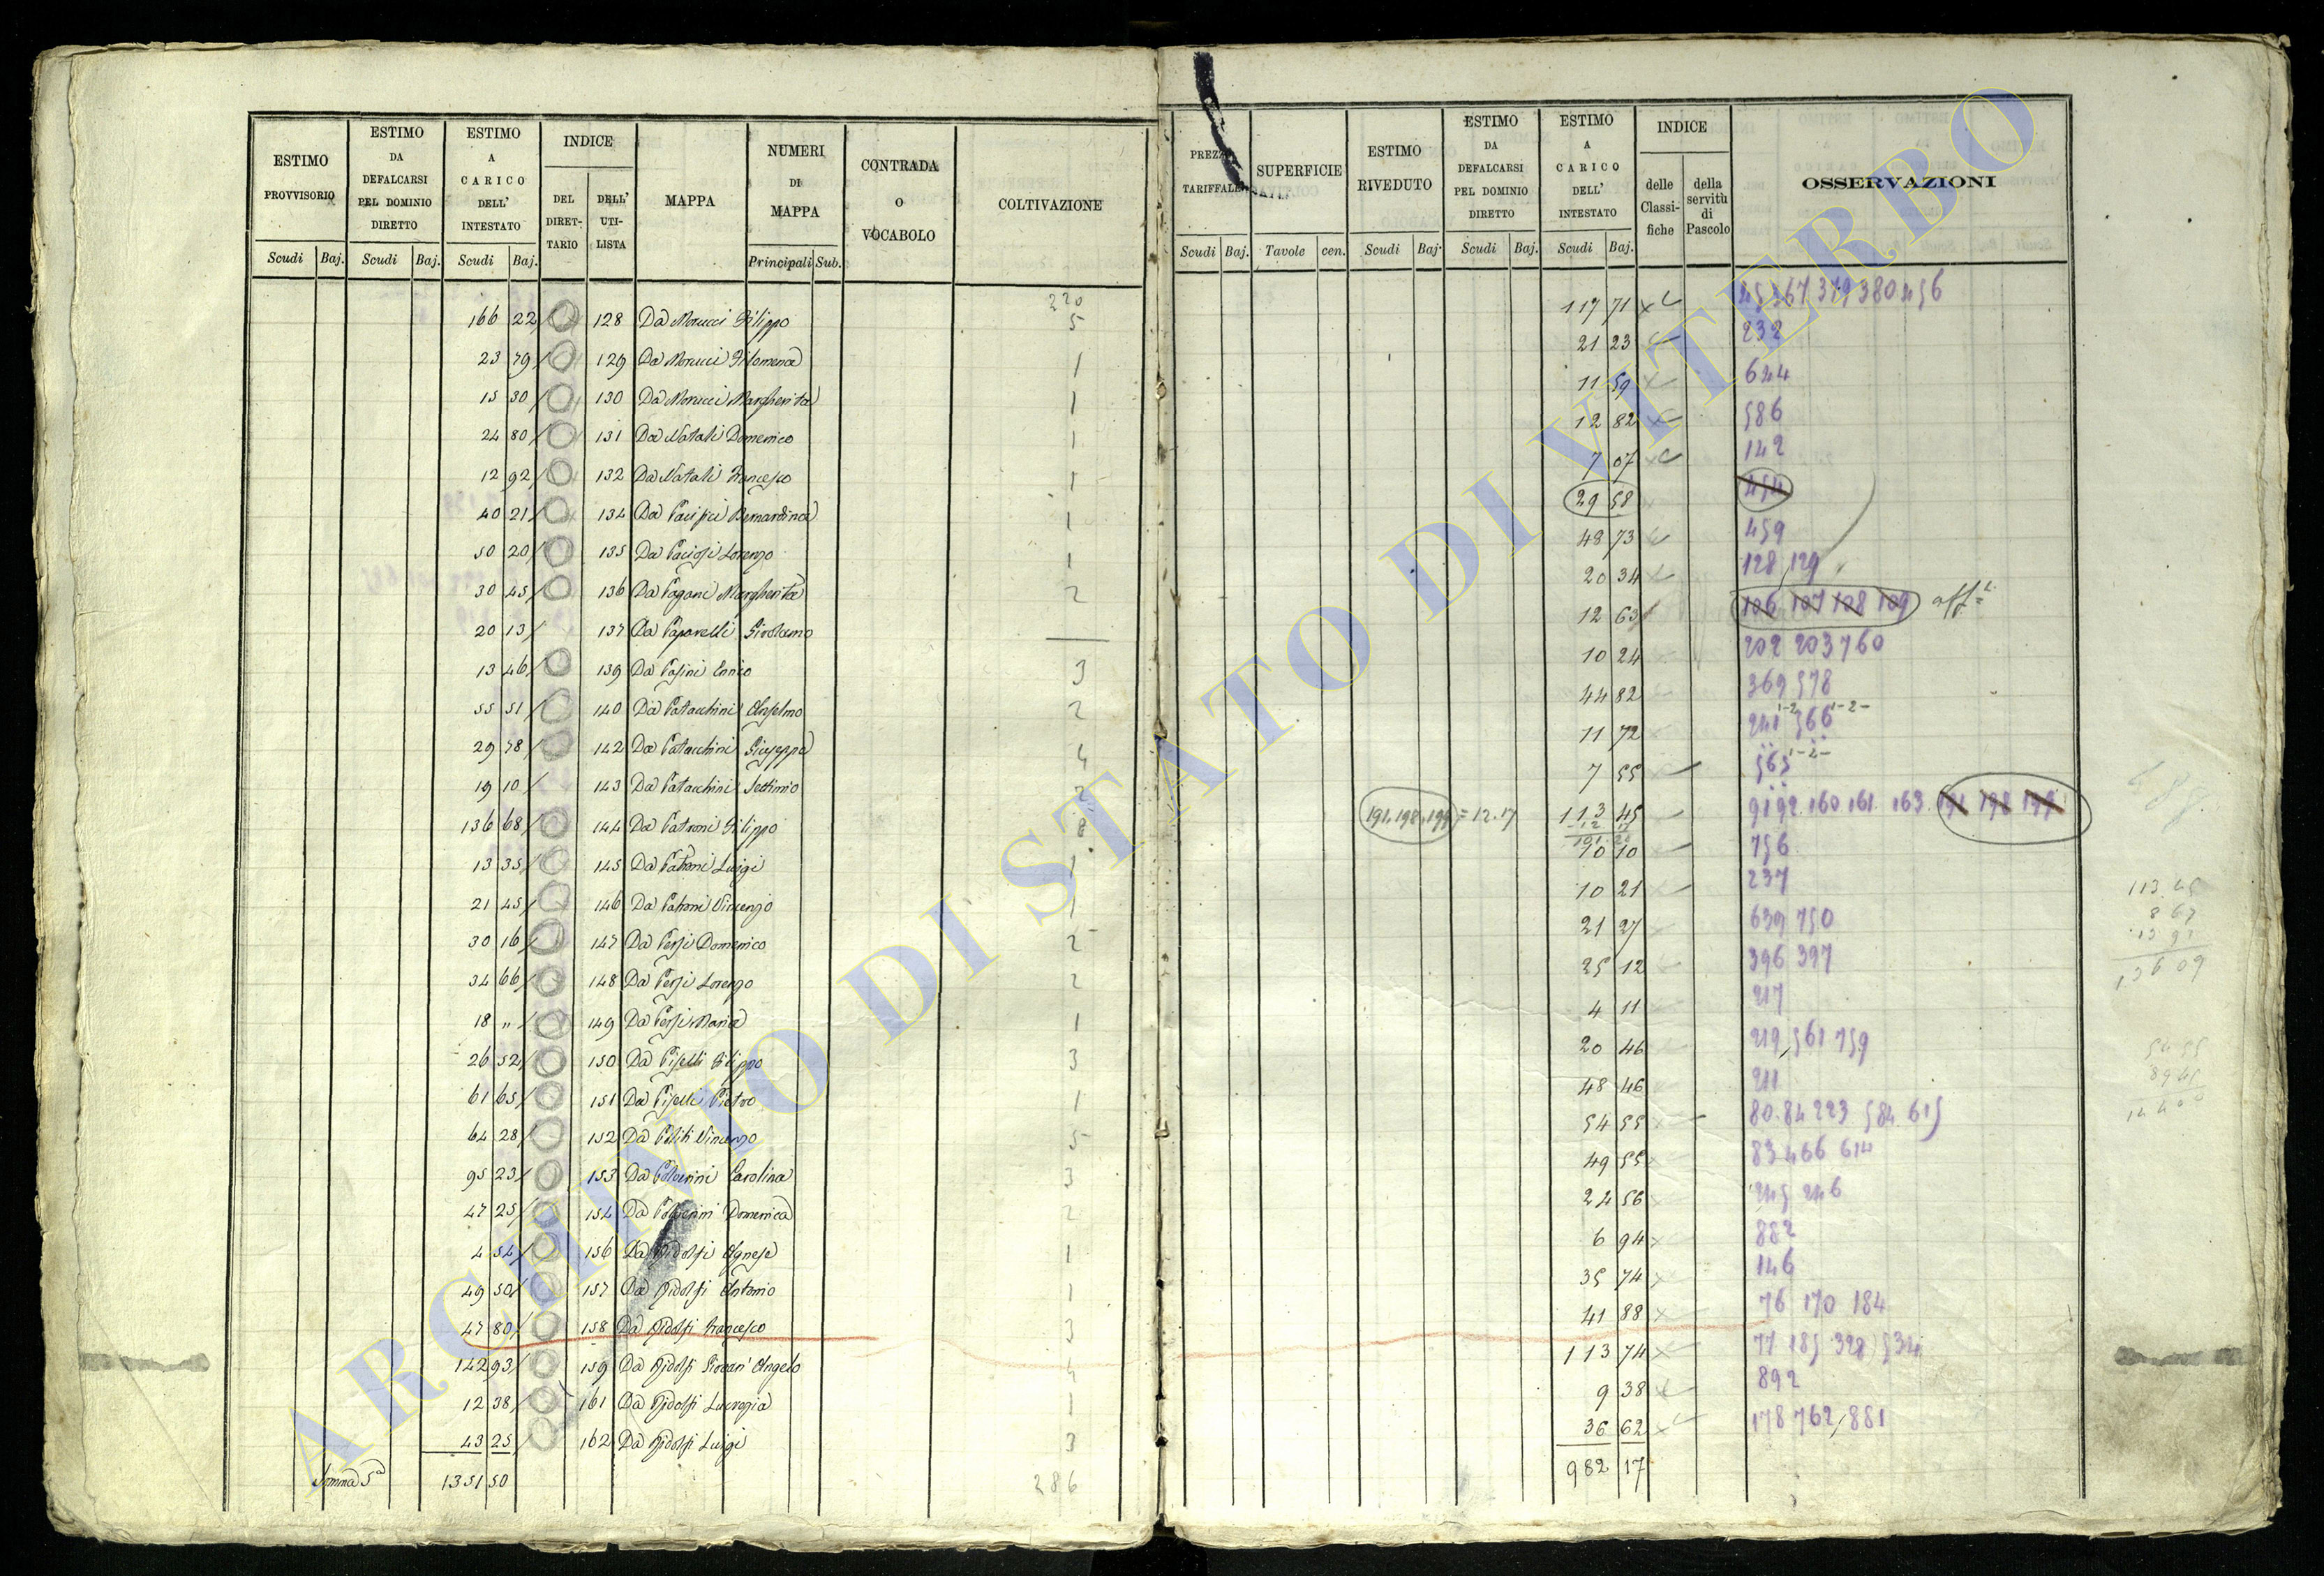 ESTIMO PROVVISORIO Scudi Baj.
ESTIMO DA DEFALCARSI PEL DOMINIO DIRETTO Scudi Baj.
ESTIMO A CARICO DELL' INTESTATO Scudi Baj.
INDICE DEL DIRETTARIO DELL' UTILISTA
MAPPA
NUMERI DI MAPPA Principali Sub.
CONTRADA O VOCABOLO
COLTIVAZIONE
220
166 22 128 Da Morucci Filippo 5
23 79 129 Da Morucci Filomena 1
15 30 130 Da Morucci Margherita 1
24 80 131 Da Natali Domenico 1
12 92 132 Da Natali Francesco 1
40 21 134 Da Pacifici Bernardina 1
50 20 135 Da Lorenzo 1
30 45 136 Da Pagani Margherita 2
20 13 137 Da Paparelli Girolamo
13 46 139 Da Pasini Ennio 3
55 51 140 Da Patacchini Anselmo 2
29 78 142 Da Patacchini Giuseppa 4
19 10 143 Da Patacchini Settimio 2
136 68 144 Da Patroni Filippo 8
13 35 145 Da Patroni Luigi 1
21 45 146 Da Patroni Vincenzo 1
30 16 147 Da Persi Domenico 2
34 66 148 Da Persi Lorenzo 2
18 " 149 Da Persi Maria 1
26 52 150 Da Piselli Filippo 3
61 65 151 Da Piselli Pietro 1
64 28 152 Da Politi Vincenzo 5
95 23 153 Da Polverini Carolina 3
47 25 154 Da Polverini Domenica 2
4 54 156 Da Ridolfi Agnese 1
49 50 157 Da Ridolfi Antonio 1
47 80 158 Da Ridolfi Francesco 3
142 93 159 Da Ridolfi Giovan' Angelo 4
12 38 161 Da Ridolfi Lucrezia 1
43 25 162 Da Ridolfi Luigi 3
Somma 5a 1351 50 286
PREZZO TARIFFALE Scudi Baj.
SUPERFICIE Tavole cen.
ESTIMO RIVEDUTO Scudi Baj.
ESTIMO DA DEFALCARSI PEL DOMINIO DIRETTO Scudi Baj.
ESTIMO A CARICO DELL' INTESTATO Scudi Baj.
INDICE delle Classifiche della servitù di Pascolo
OSSERVAZIONI
117 71 367 379 380 456
21 23 232
11 59 644
12 82 586
7 07 142
29 58 454
48 73 459
20 34 128 129
12 63 106 107 108 109
10 24 202 203 760
44 82 369 578
11 72 241 1-2 566 1-2-
7 55 565 1-2-
191, 198, 199 = 12.17 113 45 91 92 160 161. 163. 191 198 199
12 17
10 10 756
10 21 237
21 27 639 750
25 12 396 397
4 11 217
20 46 219, 561 759
48 46 211
54 55 80. 84 223 584. 615
49 55 83 466 614
24 56 245 246
6 94 882
35 74 146
41 88 76 170 184
113 74 77 185 328 534
9 38 892
36 62 178 762, 881
982 17
113 45
8 67
13 97
136 09
54 55
89 45
ARCHIVIO DI STATO DI VITERBO